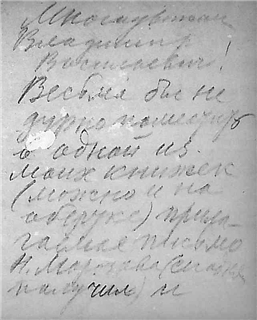 Многоуважаемый
Владимир
Васильевич!
Весьма бы не
дурно поместить
в одной из
моих книжек
(можно и на
обёртке) прила-
гаемое письмо
Н. Морозова
получил) и